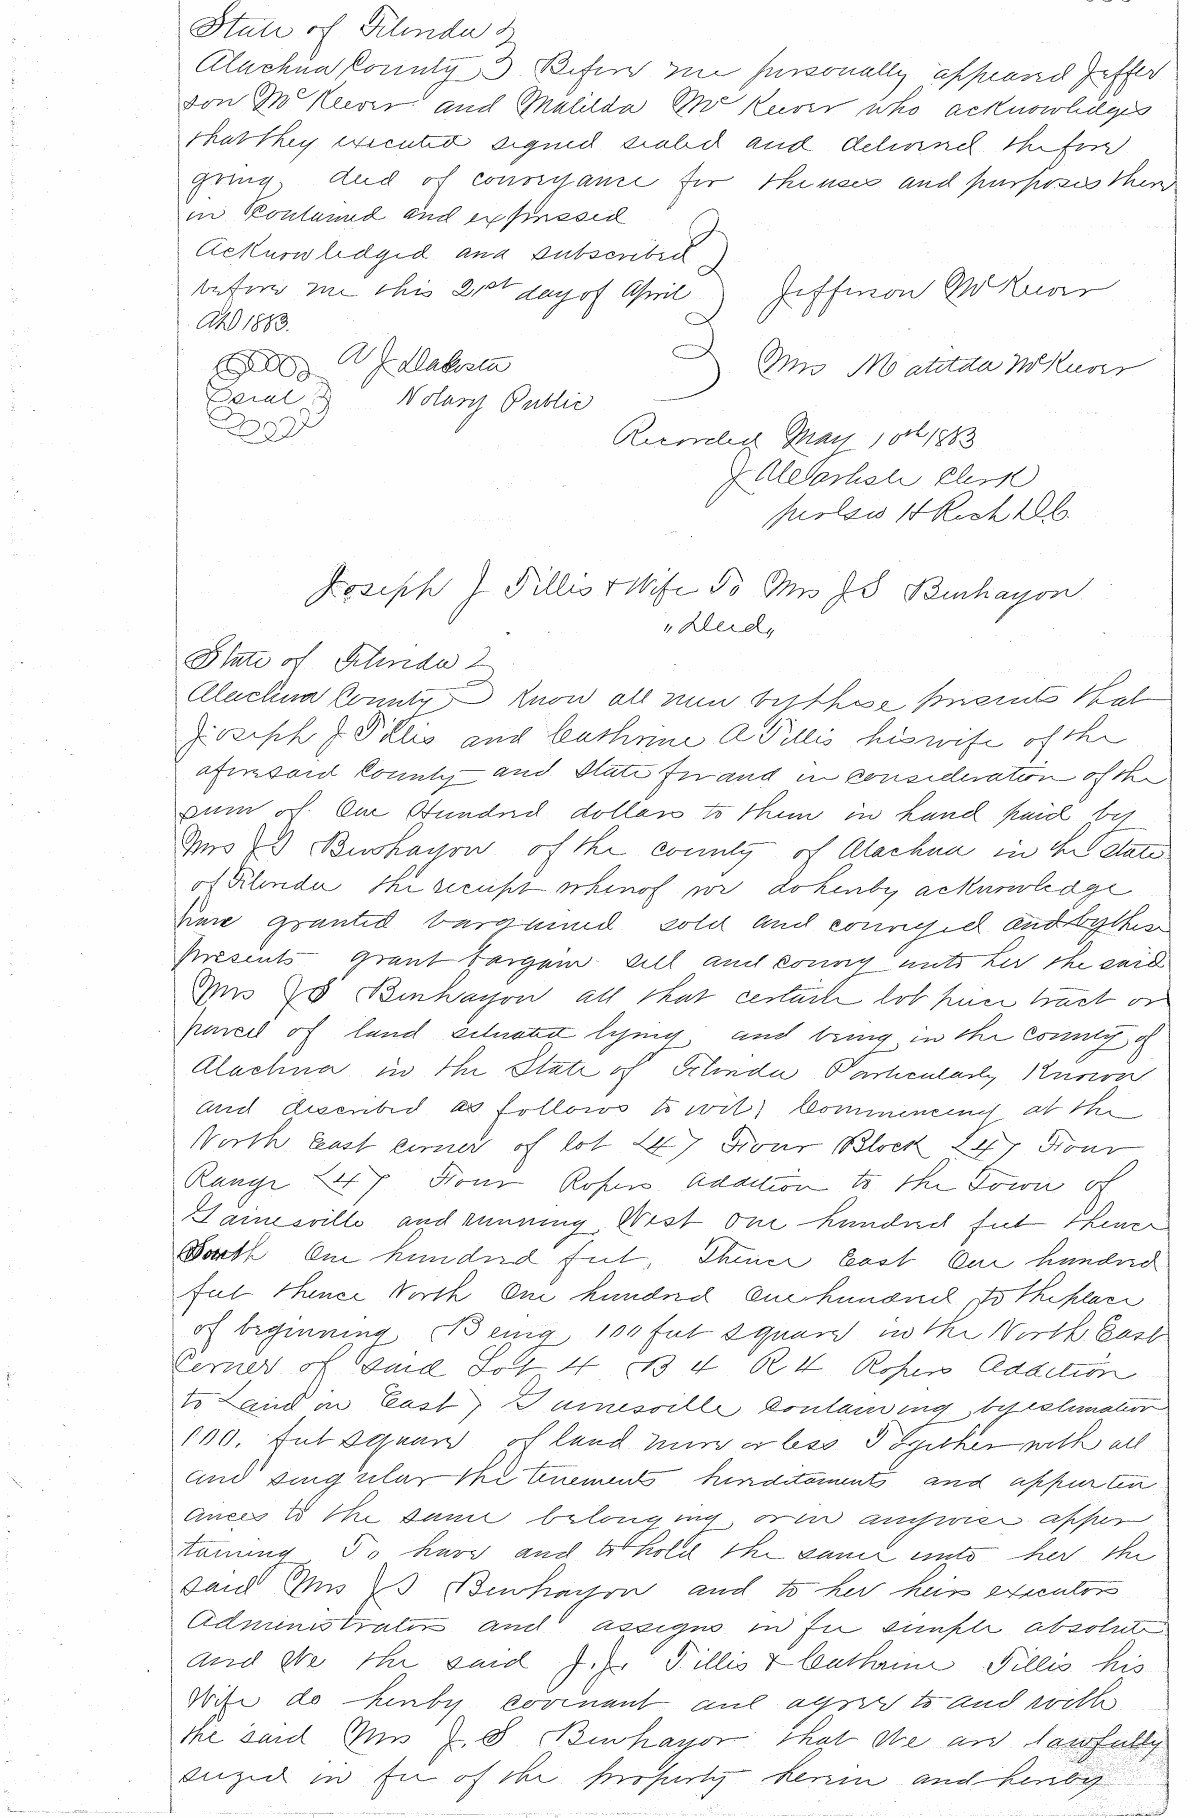 State of Florida
Alachua County } Before me personally appeared Jeffer
son McKeever and Matilda McKeever who acknowledges
that they executed signed sealed and delivered the fore
going deed of conveyance for the uses and purposes there
in contained and expressed
Acknowledged and subscribed
before me this 21st day of April
AD 1883.
Jefferson McKeever
A J Dacosta
Mrs Matilda McKeever
Seal
Notary Public
Recorded May 10th 1883
J A Carlisle Clerk
per H Rich D.C.
Joseph J Tillis & Wife To Mrs J S Benhayon
"Deed"
State of Florida
Alachua County } Know all men by these presents that
Joseph J. Tillis and Cathrine A Tillis his wife of the
aforesaid County and State for and in consideration of the
sum of One Hundred dollars to them in hand paid by
Mrs J S Benhayon of the county of Alachua in the State
of Florida the receipt whereof we do hereby acknowledge
have granted bargained sold and conveyed and by these
presents grant bargain sell and convey unto her the said
Mrs J S Benhayon all that certain lot piece tract or
parcel of land situated lying and being in the County of
Alachua in the State of Florida Particularly Known
and described as follows to wit; Commencing at the
North East corner of lot (4) Four Block (4) Four
Range (4) Four Ropers Addition to the Town of
Gainesville and running West one hundred feet thence
South One hundred feet, Thence East One hundred
feet thence North One hundred One hundred to the place
of beginning Being 100 feet square in the North East
Corner of said Lot 4 B 4 R 4 Ropers Addition
to Laid in East Gainesville containing by estimation
100. feet square of land more or less Together with all
and singular the tenements hereditaments and appurten
ances to the same belonging or in anywise apper
taining To have and to hold the same unto her the
said Mrs J S Benhayon and to her heirs executors
Administrators and assigns in fee simple absolute
and We the said J. J. Tillis & Cathrine Tillis his
Wife do hereby covenant and agree to and with
the said Mrs J. S Benhayon that We are lawfully
seized in fee of the property herein and hereby